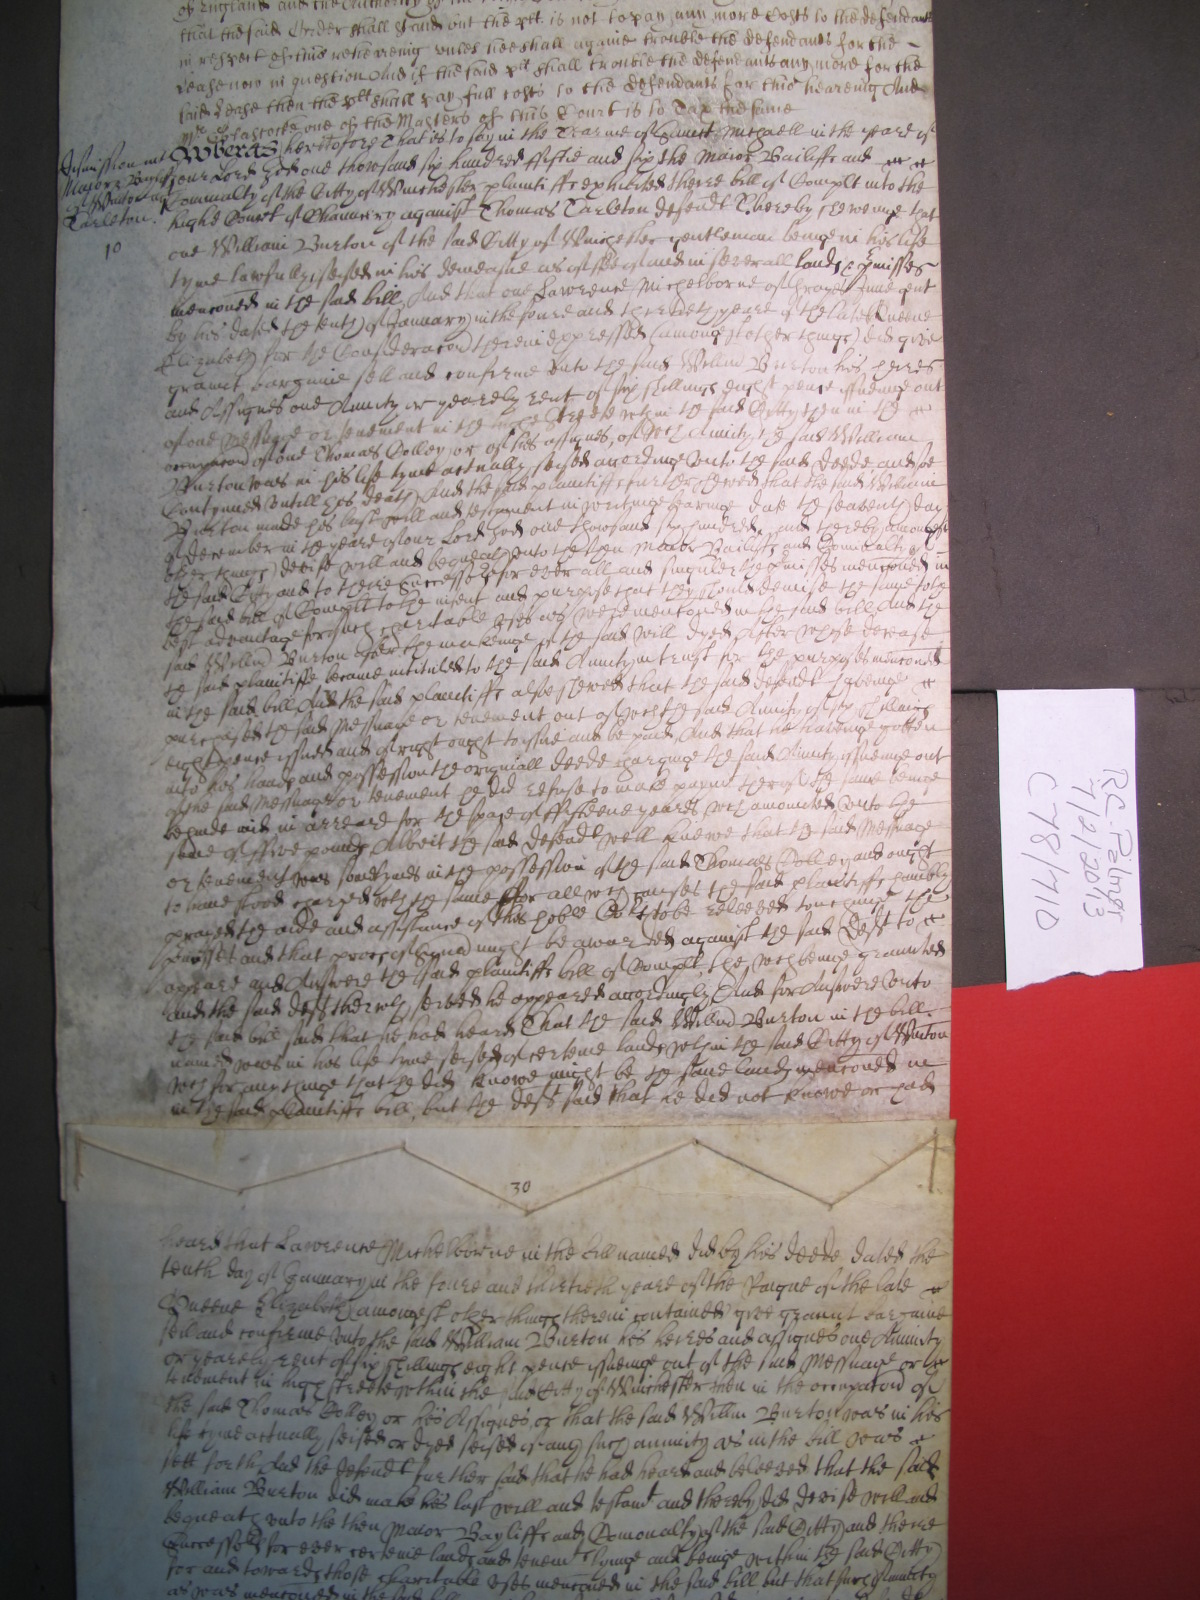 of England and the Authority
that the said Order shall stand but the plt is not to pay any more Costs to the defendants
in respect of this rehereinge unles hee shall againe trouble the defendants for the
Lease now in question And if the said plt shall trouble the defendants any more for the
said Lease then the plt shall pay full costs to the defendants for this hearing And
one of the Masters of this Court is to Tax the same
Dismission int
Maior & Bayliffs
of Winton and
Tarleton.
10
Whereas heretofore That is to say in the Tearme of Saint Michaell in the yeare of
our Lord God one thowsand six hundred fiftie and six the Maior Bailiffs and
Comunalty of the Citty of Winchester plaintiffs exhibited theire bill of Complt into the
highe Court of Chancery against Thomas Tarleton defendt Thereby shewinge that
one William Burton of the said Citty of Winchester gentleman beinge in his life
tyme lawfully seised in his demeasne as of fee of and in severall lands & pmisses
menconed in the said bill, And that one Lawrence Michelborne of gent
by his dated the tenth of January in the foure and thirtieth yeare of the late Queene
Elizabeth for the Consideracon therein expressed (amongst other things) did give
graunt bargaine sell and confirme unto the said Willm Burton his heires
and Assignes one Anuity or yearely rent of six shillings eight pence issueinge out
of one Messuage or tenement in the highe Streete wthin the said Citty then in the
occupacon of one Thomas Colley or of his assignes, of wch Anuity the said William
Burton was in his life tyme actually seised accordinge unto the said deede and soe
Contynued untill his death And the said plaintiffs further shewed that the said William
Burton made his last will and testament in writinge bearinge date the seaventh day
of December in the yeare of our Lord God one thowsand six hundred, and thereby amongst
other things devise will and bequeath unto the then Maior Bailiffs and Comunalty of
the said Citty and to theire Successors for ever all and singuler the pmisses menconed in
the said bill of Complt to the intent and purpose that they should demise the same to the
best advantage for such charitable uses as were mentoned in the said bill And the
said Willm Burton after the makeinge of the said will dyed After whose decease
the said plaintiffs became intituled to the said Anuity in trust for the purposes menconed
in the said bill And the said plaintiffs also shewed that the said defendt haveinge
purchased the said Messuage or tenement out of wch the said Anuity of six shillings
eight pence issued and of right ought to issue and be paid, And that he haveinge gotten
into his hands and possession the originall deede chargeinge the said Anuity issueinge out
of the said Messuage or tenement he did refuse to make paymt thereof the same beinge
behinde and in arreare for the space of fifteene yeares wch amounted unto the
sume of five pounds Albeit the said defendt well knewe that the said Messuage
or tenement was somtymes in the possession of the said Thomas Colley and ought
to have stood charged wth the same ffor all wch causes the said plaintiffs humbly
prayed the aide and assistance of this hoble Cort to be releeved touchinge the
pmisses and that process of Spena might be awarded against the said Deft to
appeare and Answere the said plaintiffs bill of Complt, the wch beinge graunted
and the said Deft therewth served he appeared accordingly And for Answere unto
the said bill said that he had heard That the said Willm Burton in the bill
named was in his life tyme seised of certeine lands wthin the said Citty of Winton
wch for any thinge that he did knowe might be the same lands menconed in
in the said plaintiffs bill, but the Deft said that he did not knowe or had
30
heard that Lawrence Michelborne in the bill named did by his deede dated the
tenth day of January in the foure and thirtieth yeare of the Raigne of the late
Queene Elizabeth amongest other things therein contained give graunt bargaine
sell and confirme unto the said William Burton his heires and assignes one Anuity
or yearely rent of six shillings eight pence issueinge out of the said Messuage or
tenement in high streete within the said Citty of Winchester then in the occupacon of
the said Thomas Colley or his Assignes, or that the said Willm Burton was in his
life tyme actually seised or dyed seised of any such annuity as in the bill was
sett forth And the defendt further said that he had heard and beleeved that the said
William Burton did make his last will and testamt and thereby did devise will and
bequeath unto the then Maior Bayliffs and Comonalty of the said Citty and theire
Successors for ever certeine lands and tenemts lyinge and beinge within the said Citty
for and towards those charitable uses menconed in the said bill but that such Anuity
as was menconed in the said bill
RC. Palmer
7/2/2013
C78/710